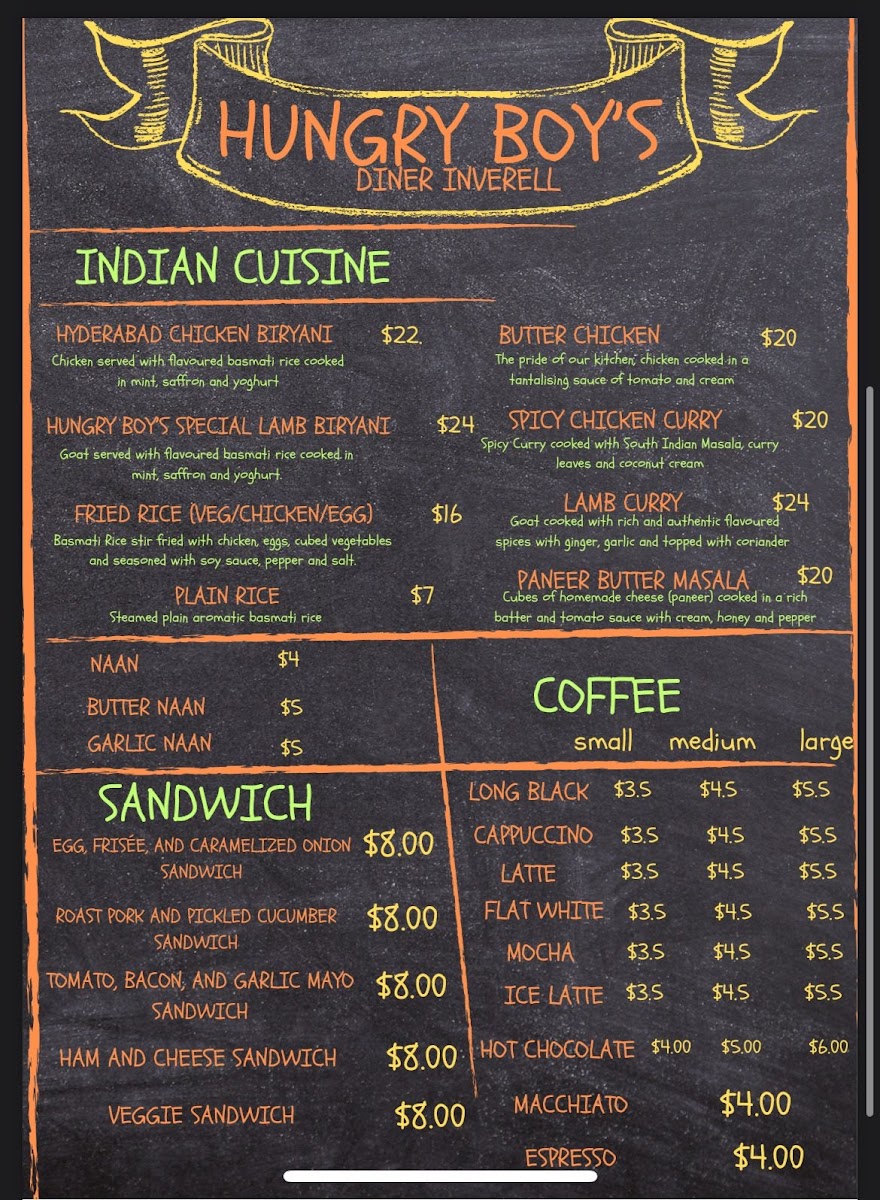 HUNGRY BOY'S
DINER INVERELL
INDIAN CUISINE
HYDERABAD CHICKEN BIRYANI $22.
Chicken served with flavoured basmati rice cooked
in mint, saffron and yoghurt
HUNGRY BOY'S SPECIAL LAMB BIRYANI $24
Goat served with flavoured basmati rice cooked in
mint, saffron and yoghurt.
FRIED RICE (VEG/CHICKEN/EGG) $16
Basmati Rice stir fried with chicken, eggs, cubed vegetables
and seasoned with soy sauce, pepper and salt.
PLAIN RICE $7
Steamed plain aromatic basmati rice
BUTTER CHICKEN $20
The pride of our kitchen; chicken cooked in a
tantalising sauce of tomato and cream
SPICY CHICKEN CURRY $20
Spicy Curry cooked with South Indian Masala, curry
leaves and coconut cream
LAMB CURRY $24
Goat cooked with rich and authentic flavoured
spices with ginger, garlic and topped with coriander
PANEER BUTTER MASALA $20
Cubes of homemade cheese (paneer) cooked in a rich
batter and tomato sauce with cream, honey and pepper
NAAN $4
BUTTER NAAN $5
GARLIC NAAN $5
SANDWICH
EGG, FRISÉE, AND CARAMELIZED ONION $8.00
SANDWICH
ROAST PORK AND PICKLED CUCUMBER $8.00
SANDWICH
TOMATO, BACON, AND GARLIC MAYO $8.00
SANDWICH
HAM AND CHEESE SANDWICH $8.00
VEGGIE SANDWICH $8.00
COFFEE
small medium large
LONG BLACK $3.5 $4.5 $5.5
CAPPUCCINO $3.5 $4.5 $5.5
LATTE $3.5 $4.5 $5.5
FLAT WHITE $3.5 $4.5 $5.5
MOCHA $3.5 $4.5 $5.5
ICE LATTE $3.5 $4.5 $5.5
HOT CHOCOLATE $4.00 $5.00 $6.00
MACCHIATO $4.00
ESPRESSO $4.00